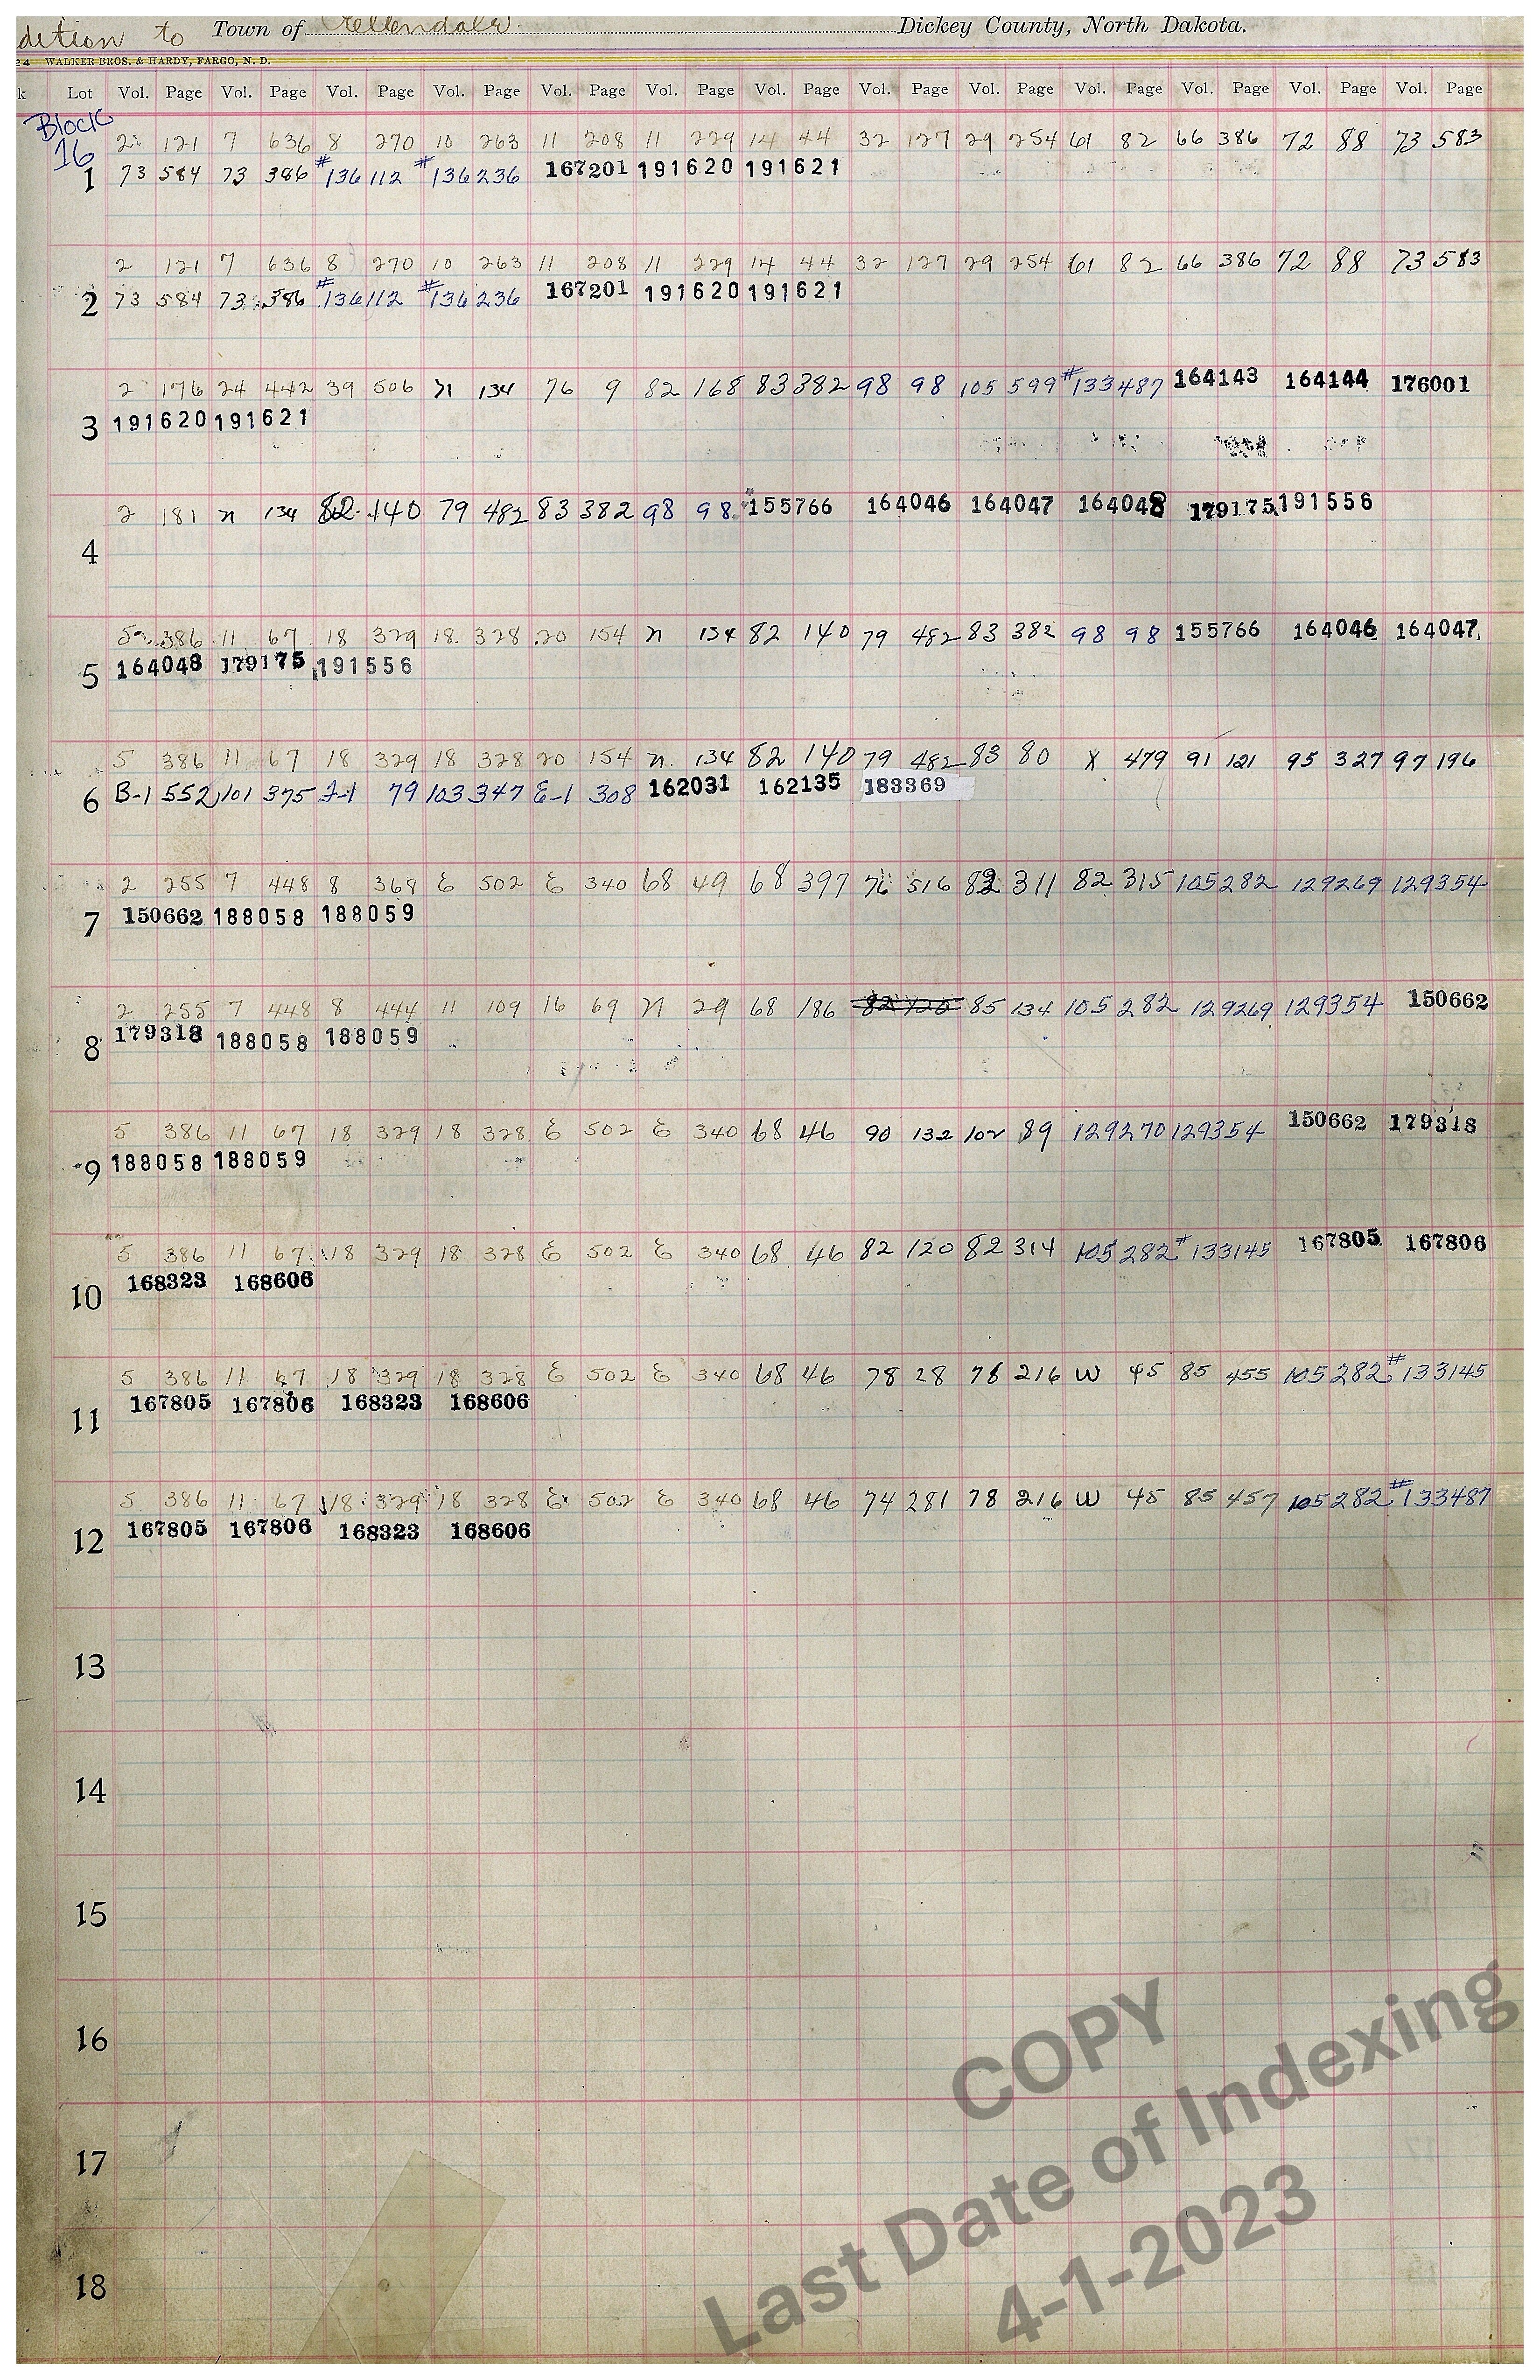 dition to Town of Ellendale Dickey County, North Dakota.
24 WALKER BROS. & HARDY, FARGO, N. D.
k Lot Vol. Page Vol. Page Vol. Page Vol. Page Vol. Page Vol. Page Vol. Page Vol. Page Vol. Page Vol. Page Vol. Page Vol. Page Vol. Page
Block
16
2 121 7 636 8 270 10 263 11 208 11 229 14 44 32 127 29 254 61 82 66 386 72 88 73 583
1 73 584 73 386 #136112 #136236 167201 191620 191621
2 121 7 636 8 270 10 263 11 208 11 229 14 44 32 127 29 254 61 82 66 386 72 88 73 583
2 73 584 73 386 #136112 #136236 167201 191620 191621
2 176 24 442 39 506 n 134 76 9 82 168 83 382 98 98 105 599 #133487 164143 164144 176001
3 191620 191621
2 181 n 134 82 140 79 482 83 382 98 98 155766 164046 164047 164048 179175 191556
4
5 386 11 67 18 329 18 328 20 154 n 134 82 140 79 482 83 382 98 98 155766 164046 164047
164048 179175 191556
5
5 386 11 67 18 329 18 328 20 154 n 134 82 140 79 482 83 80 X 479 91 121 95 327 97 196
6 B-1 552 101 375 J-1 79 103 347 E-1 308 162031 162135 183369
2 255 7 448 8 368 E 502 E 340 68 49 68 397 76 516 82 311 82 315 105 282 129269 129354
7 150662 188058 188059
2 255 7 448 8 444 11 109 16 69 n 29 68 186 82 120 85 134 105 282 129269 129354 150662
8 179318 188058 188059
5 386 11 67 18 329 18 328 E 502 E 340 68 46 90 132 102 89 129270 129354 150662 179318
9 188058 188059
5 386 11 67 18 329 18 328 E 502 E 340 68 46 82 120 82 314 105 282 #133145 167805 167806
168323 168606
10
5 386 11 67 18 329 18 328 E 502 E 340 68 46 78 28 78 216 W 45 85 455 105 282 #133145
167805 167806 168323 168606
11
5 386 11 67 18 329 18 328 E 502 E 340 68 46 74 281 78 216 W 45 85 457 105 282 #133487
12 167805 167806 168323 168606
13
14
15
16
17
18
COPY
Last Date of Indexing
4-1-2023